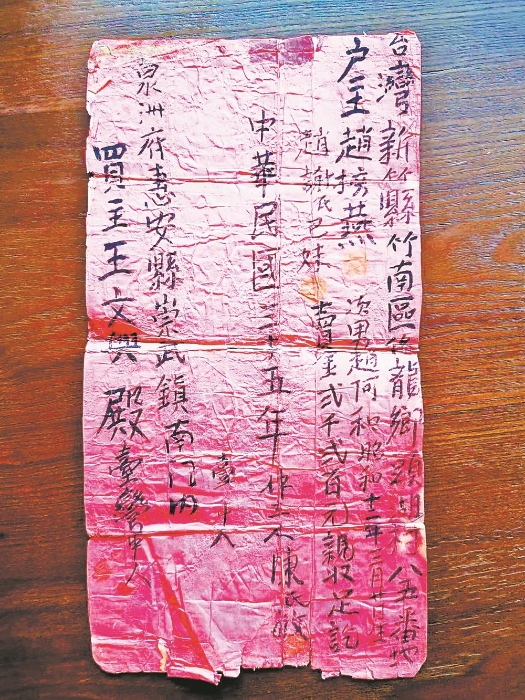 台灣新竹縣竹南區後龍鄉頭湖村八五番地
戶主趙接燕 次男趙阿和昭和十一年二月廿日生
趙謝氏巳妹 賣金弍千弍百元親收足訖
中華民國三十五年 作主人陳氏
臺中人
泉州府惠安縣崇武鎮南门内
買主王文興殿 臺灣中人